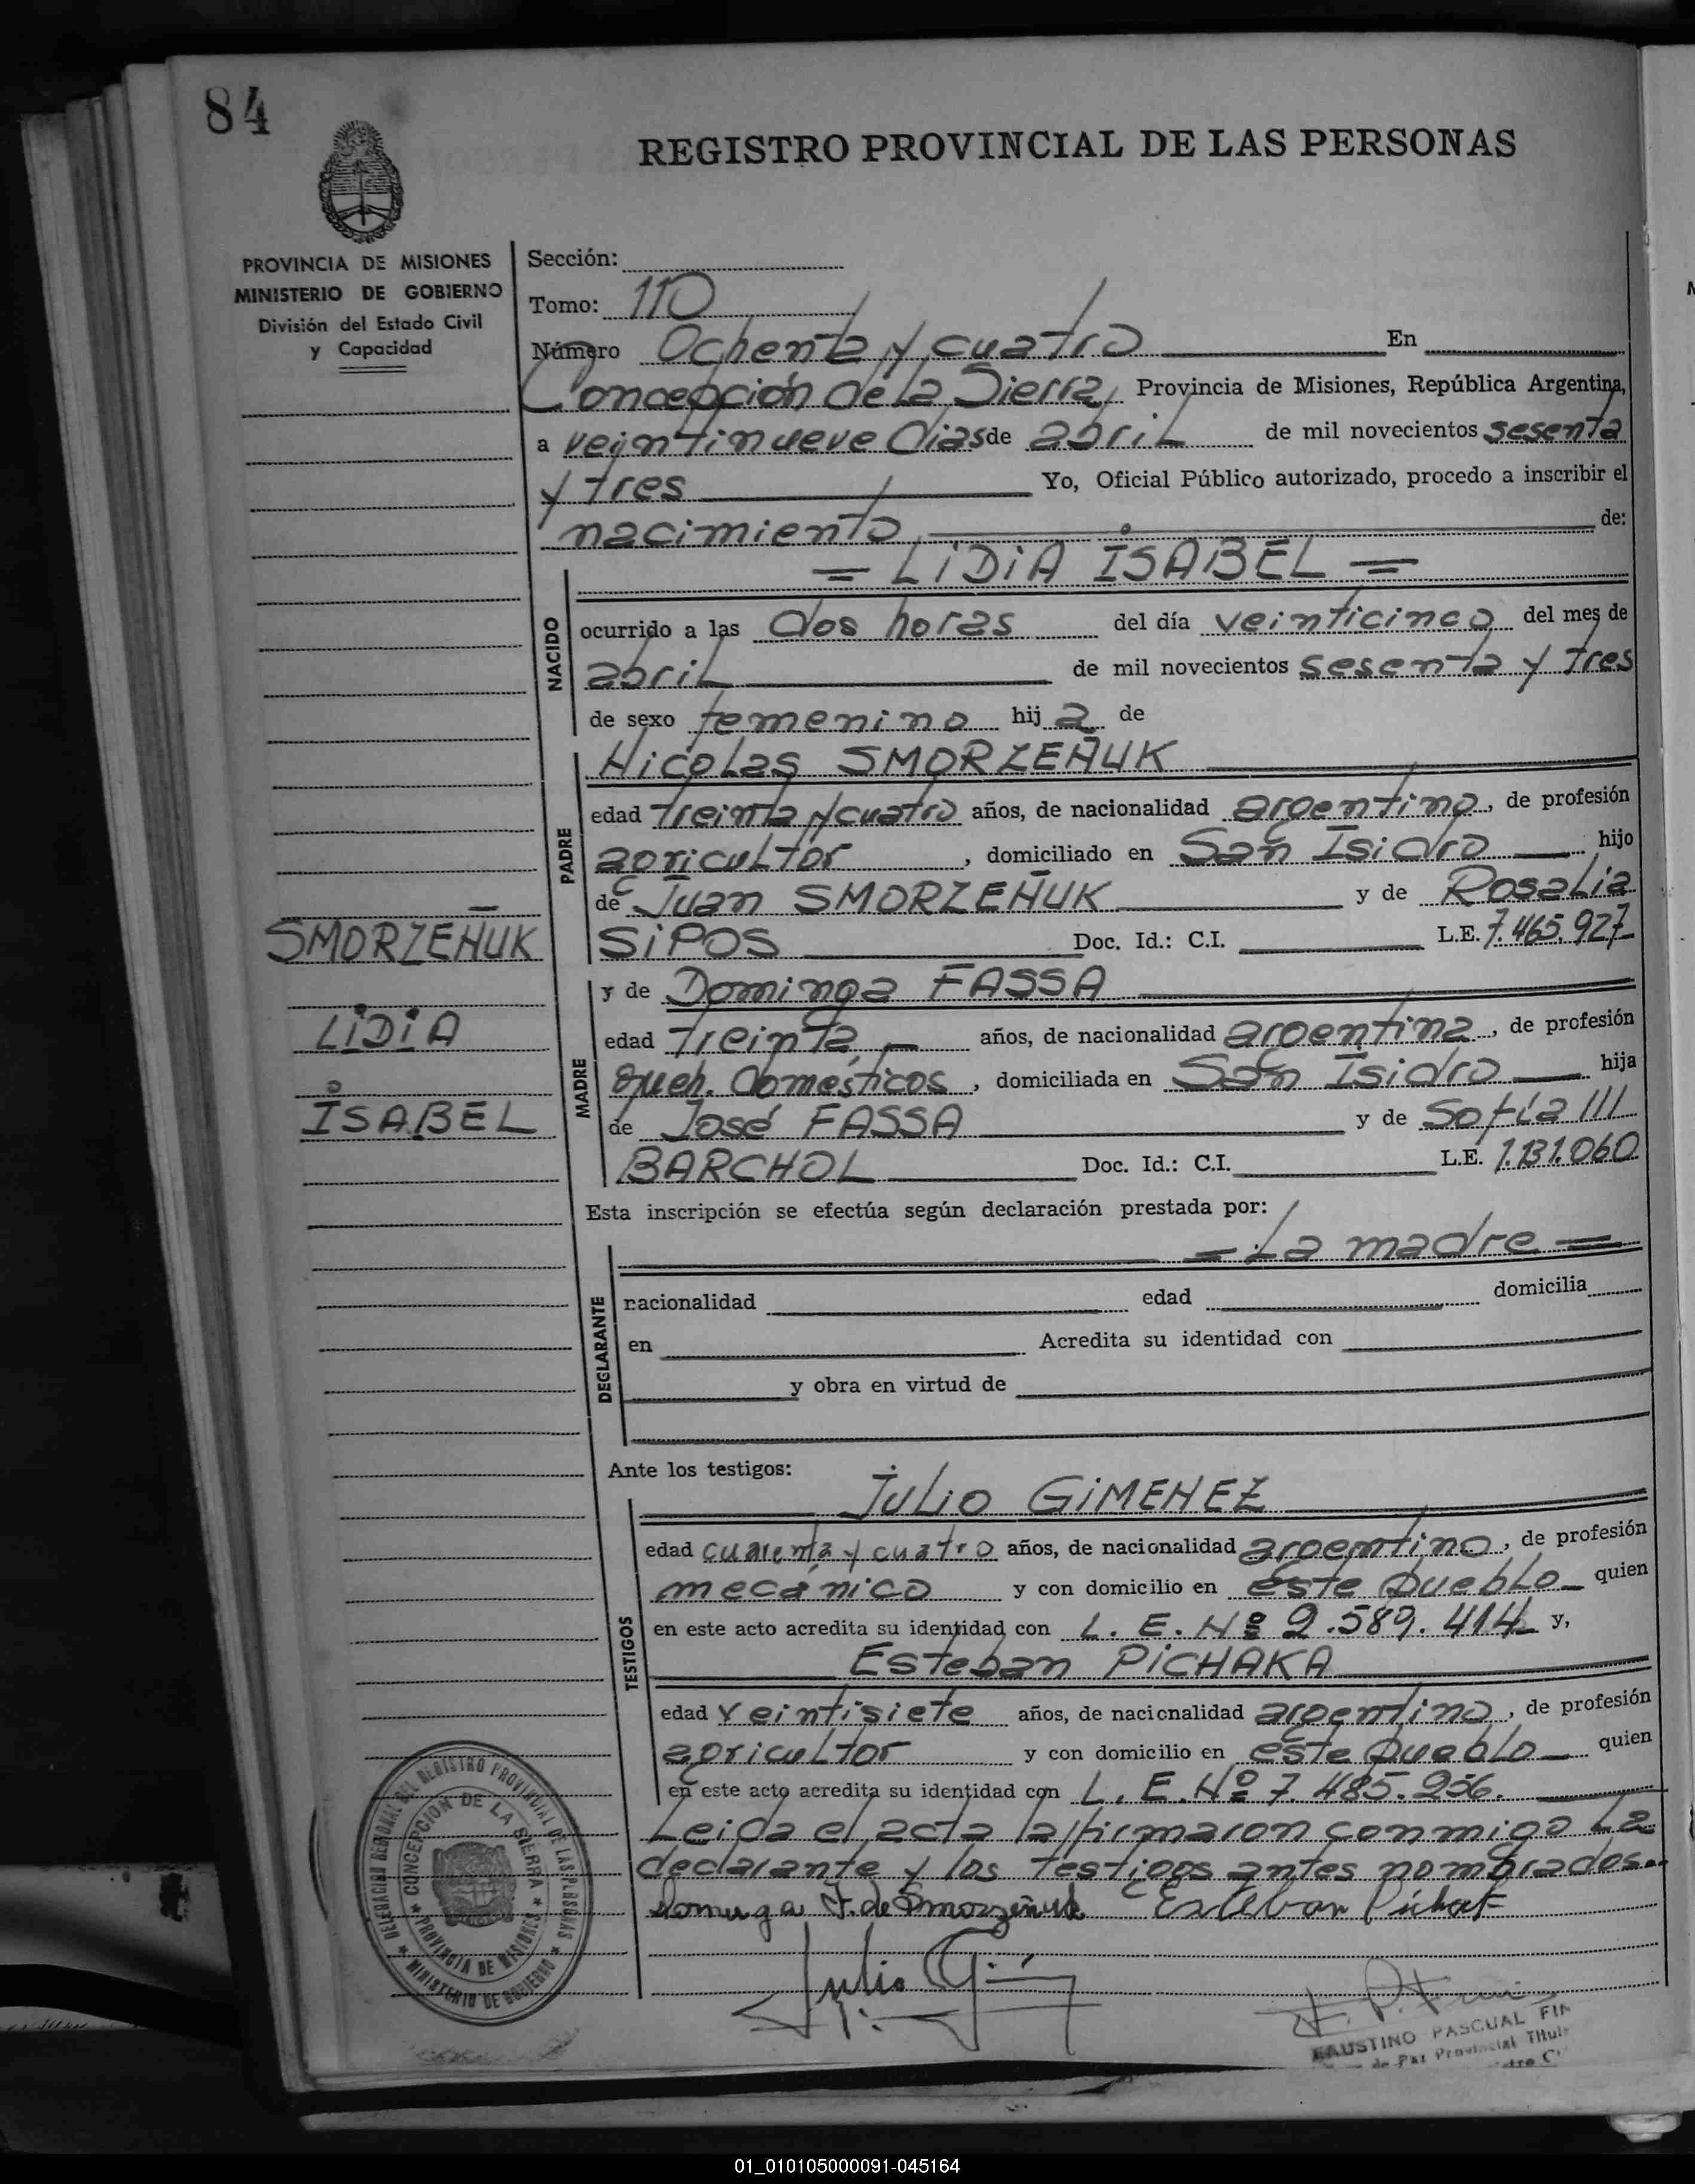 84
REGISTRO PROVINCIAL DE LAS PERSONAS
PROVINCIA DE MISIONES
MINISTERIO DE GOBIERNO
División del Estado Civil
y Capacidad
Sección:
Tomo: 110
Número Ochenta y cuatro En
Concepción de la Sierra, Provincia de Misiones, República Argentina,
a veintinueve dias de abril de mil novecientos sesenta
y tres Yo, Oficial Público autorizado, procedo a inscribir el
nacimiento de:
= LIDIA ISABEL =
NACIDO
ocurrido a las dos horas del día veinticinco del mes de
abril de mil novecientos sesenta y tres
de sexo femenino hija de
PADRE
Nicolas SMORZEÑUK
edad treinta y cuatro años, de nacionalidad argentino, de profesión
agricultor, domiciliado en San Isidro hijo
de Juan SMORZEÑUK y de Rosalia
SIPOS Doc. Id.: C.I. L.E. 7.465.927
SMORZEÑUK
LIDIA
ISABEL
MADRE
y de Dominga FASSA
edad treinta años, de nacionalidad argentina, de profesión
queh. domésticos, domiciliada en San Isidro hija
de José FASSA y de Sofía ///
BARCHOL Doc. Id.: C.I. L.E. 1.131.060
Esta inscripción se efectúa según declaración prestada por:
= La madre =
DECLARANTE
nacionalidad edad domicilia
en Acredita su identidad con
y obra en virtud de
Ante los testigos:
TESTIGOS
Julio GIMENEZ
edad cuarenta y cuatro años, de nacionalidad argentino, de profesión
mecánico y con domicilio en éste pueblo quien
en este acto acredita su identidad con L. E. Nº 2.589.414 y,
Esteban PICHAKA
edad veintisiete años, de nacionalidad argentino, de profesión
agricultor y con domicilio en éste pueblo quien
en este acto acredita su identidad con L. E. Nº 7.485.256.
Leida el acta la firmaron conmigo la
declarante y los testigos antes nombrados.
Dominga F. de Smorzeñuk Esteban Pichak
Julio
DELEGACION REGIONAL DEL REGISTRO PROVINCIAL DE LAS PERSONAS
CONCEPCION DE LA SIERRA
PROVINCIA DE MISIONES
MINISTERIO DE GOBIERNO
FAUSTINO PASCUAL FIN
de Paz Provincial Titul
01_010105000091-045164